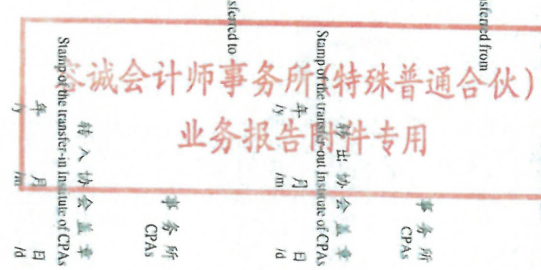 容诚会计师事务所(特殊普通合伙)
业务报告附件专用
sferred from
事务所
CPAs
转出协会盖章
Stamp of the transfer-out Institute of CPAs
年 月 日
/y /m /d
sferred to
事务所
CPAs
转入协会盖章
Stamp of the transfer-in Institute of CPAs
年 月 日
/y /m /d